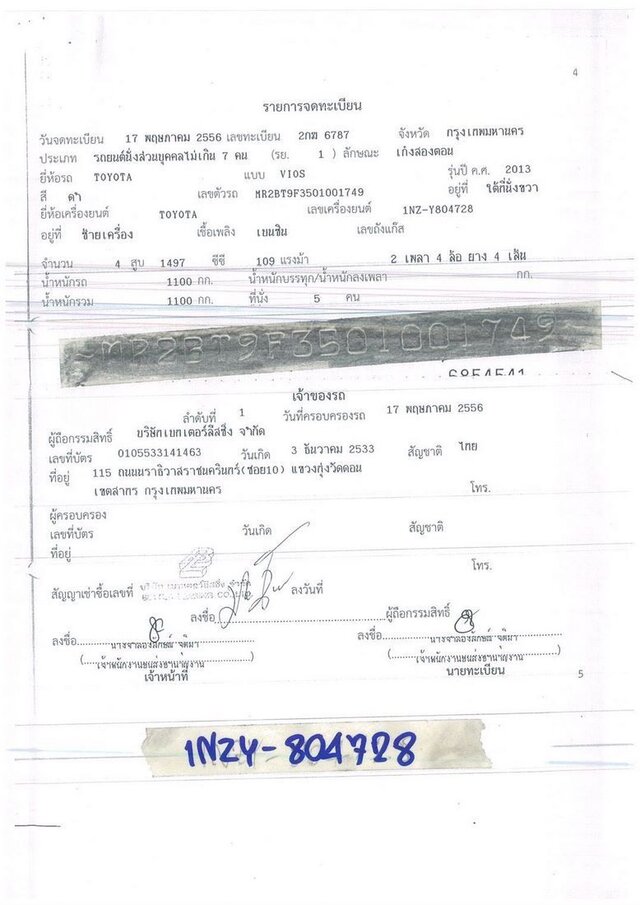 4
รายการจดทะเบียน
วันจดทะเบียน 17 พฤษภาคม 2556 เลขทะเบียน 2กฆ 6787 จังหวัด กรุงเทพมหานคร
ประเภท รถยนต์นั่งส่วนบุคคลไม่เกิน 7 คน (รย. 1 ) ลักษณะ เก๋งสองตอน
ยี่ห้อรถ TOYOTA แบบ VIOS รุ่นปี ค.ศ. 2013
สี ดำ เลขตัวรถ MR2BT9F3501001749 อยู่ที่ ใต้ที่นั่งขวา
ยี่ห้อเครื่องยนต์ TOYOTA เลขเครื่องยนต์ 1NZ-Y804728
อยู่ที่ ซ้ายเครื่อง เชื้อเพลิง เบนซิน เลขถังแก๊ส
จำนวน 4 สูบ 1497 ซีซี 109 แรงม้า 2 เพลา 4 ล้อ ยาง 4 เส้น
น้ำหนักรถ 1100 กก. น้ำหนักบรรทุก/น้ำหนักลงเพลา กก.
น้ำหนักรวม 1100 กก. ที่นั่ง 5 คน
MR2BT9F3501001749
เจ้าของรถ
ลำดับที่ 1 วันที่ครอบครองรถ 17 พฤษภาคม 2556
ผู้ถือกรรมสิทธิ์ บริษัทเบทเตอร์ลีสซิ่ง จำกัด
เลขที่บัตร 0105533141463 วันเกิด 3 ธันวาคม 2533 สัญชาติ ไทย
ที่อยู่ 115 ถนนนราธิวาสราชนครินทร์(ซอย10) แขวงทุ่งวัดดอน
เขตสาทร กรุงเทพมหานคร โทร.
ผู้ครอบครอง
เลขที่บัตร วันเกิด สัญชาติ
ที่อยู่
โทร.
สัญญาเช่าซื้อเลขที่ ลงวันที่
ลงชื่อ ผู้ถือกรรมสิทธิ์
ลงชื่อ ลงชื่อ
เจ้าหน้าที่ นายทะเบียน
5
1NZY-804728